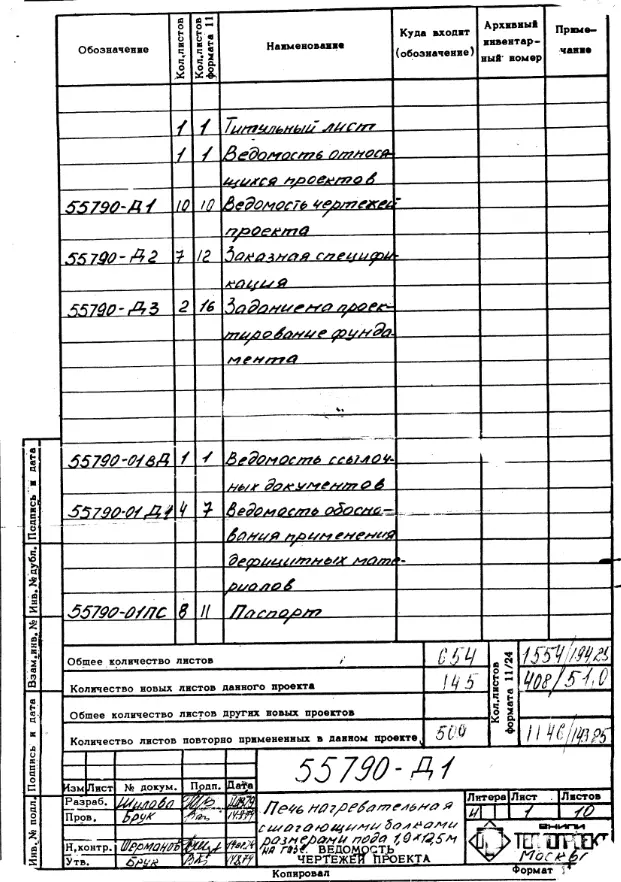 Обозначение Кол.листов Кол.листов формата 11 Наименование Куда входит (обозначение) Архивный инвентарный номер Примечание
1 1 Титульный лист
1 1 Ведомость относя-
щихся проектов
55790-Д1 10 10 Ведомость чертежей
проекта
55790-Д2 7 12 Заказная специфи-
кация
55790-Д3 2 16 Задание на проек-
тирование фунда-
мента
55790-01ВД 1 1 Ведомость ссылоч-
ных документов
55790-01Д1 4 7 Ведомость обосно-
вания применения
дефицитных мате-
риалов
55790-01ПС 8 11 Паспорт
Инв.№ подл. Подпись и дата Взам.инв.№ Инв.№ дубл. Подпись и дата
Кол.листов формата 11/24
Общее количество листов 654 1554/194.25
Количество новых листов данного проекта 145 408/51,0
Общее количество листов других новых проектов
Количество листов повторно примененных в данном проекте 500 1146/143.25
55790-Д1
Изм Лист № докум. Подп. Дата
Разраб. Шилова
Пров. Брук
Н.контр.
Утв. Брук
Печь нагревательная
с шагающими балками
размерами пода 1,9×12,5м
на газе. ВЕДОМОСТЬ
ЧЕРТЕЖЕЙ ПРОЕКТА
Литера Лист Листов
И 1 10
ВНИПИ
ТЕПЛОПРОЕКТ
Москва
Копировал Формат